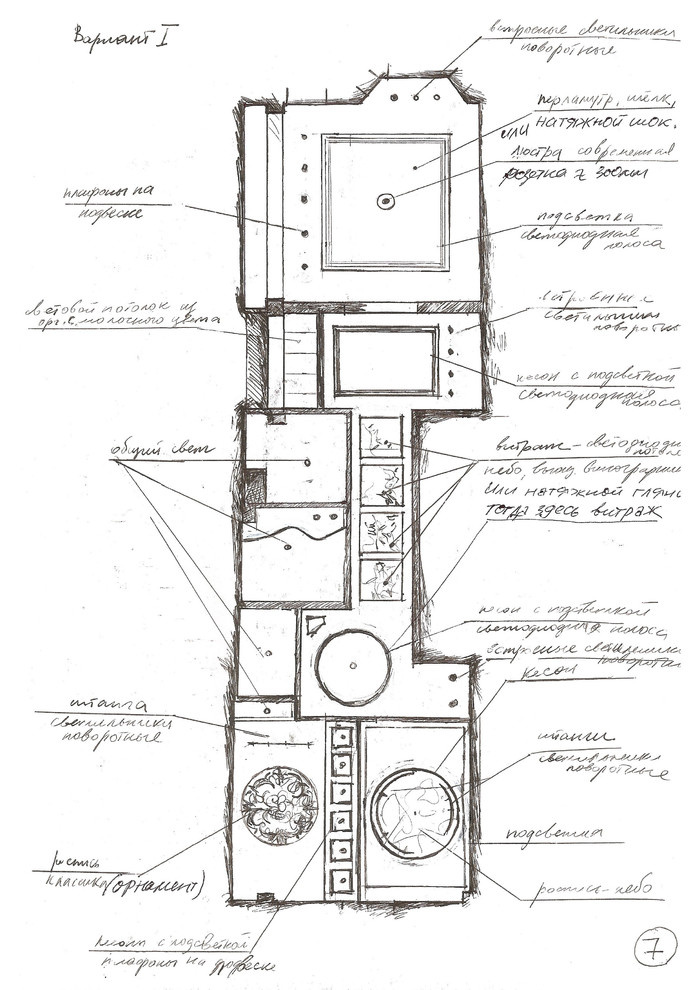 Вариант I
встроеные светильники
поворотные
перламутр, шёлк,
или натяжной шок.
люстра современная
розетка 300мм
плафоны на
подвеске
подсветка
светодиодная
полоса
световой потолок из
орг.с. молочного цвета
светильники
поворотные
кесон с подсветкой
светодиодная
полоса
общий свет
витраж - светодиодн
небо,
или натяжной глянц
тогда здесь витраж
кесон с подсветкой
светодиодная полоса
встроеные светильники
поворотные
кесон
штанга
светильники
поворотные
штанги
светильники
поворотные
подсветка
роспись
класика (орнамент)
роспись-небо
кесоны с подсветкой
плафоны на подвеске
7